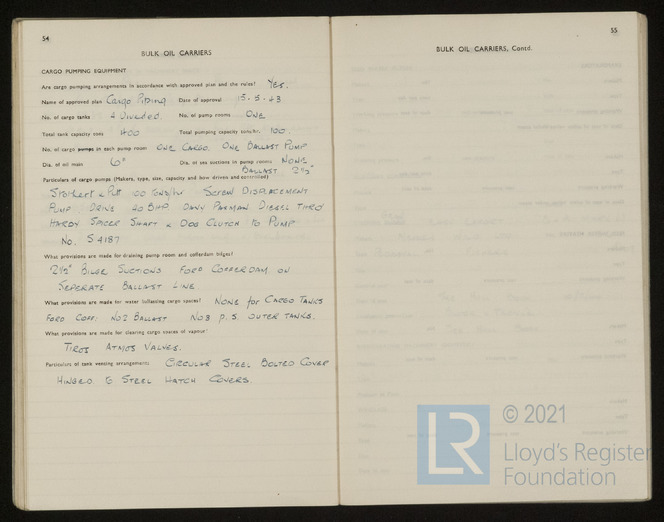 54
BULK OIL CARRIERS
CARGO PUMPING EQUIPMENT
Are cargo pumping arrangements in accordance with approved plan and the rules? YES.
Name of approved plan Cargo Piping Date of approval 15.5.63
No. of cargo tanks 4 Divided. No. of pump rooms ONE
Total tank capacity tons 400 Total pumping capacity tons/hr. 100.
No. of cargo pumps in each pump room ONE CARGO. ONE BALLAST PUMP
Dia. of oil main 6" Dia. of sea suctions in pump rooms NONE
BALLAST 2½"
Particulars of cargo pumps (Makers, type, size, capacity and how driven and controlled)
Stothert & Pitt 100 Tons/hr SCREW DISPLACEMENT
PUMP. DRIVE 40 BHP. DAVY PAXMAN DIESEL THRO
HARDY SPICER SHAFT & DOG CLUTCH to PUMP
No. S 4187
What provisions are made for draining pump room and cofferdam bilges?
2½" BILGE SUCTIONS FORD COFFERDAM ON
SEPERATE BALLAST LINE.
What provisions are made for water ballasting cargo spaces? NONE for CARGO TANKS
FORD COFF: No2 BALLAST No3 P.S OUTER TANKS.
What provisions are made for clearing cargo spaces of vapour?
ATMOS VALVES.
Particulars of tank venting arrangements CIRCULAR STEEL BOLTED COVER
HINGED to STEEL HATCH COVERS.
55
BULK OIL CARRIERS, Contd.
LR
© 2021
Lloyd's Register
Foundation